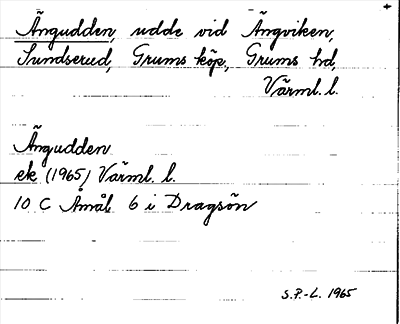 Ängudden, udde vid Ängviken,
Sundserud, Grums köp., Grums hd,
Värml. l.
Ängudden
ek (1965) Värml. l.
10 C Åmål 6 i Dragsön
S.P.-L. 1965